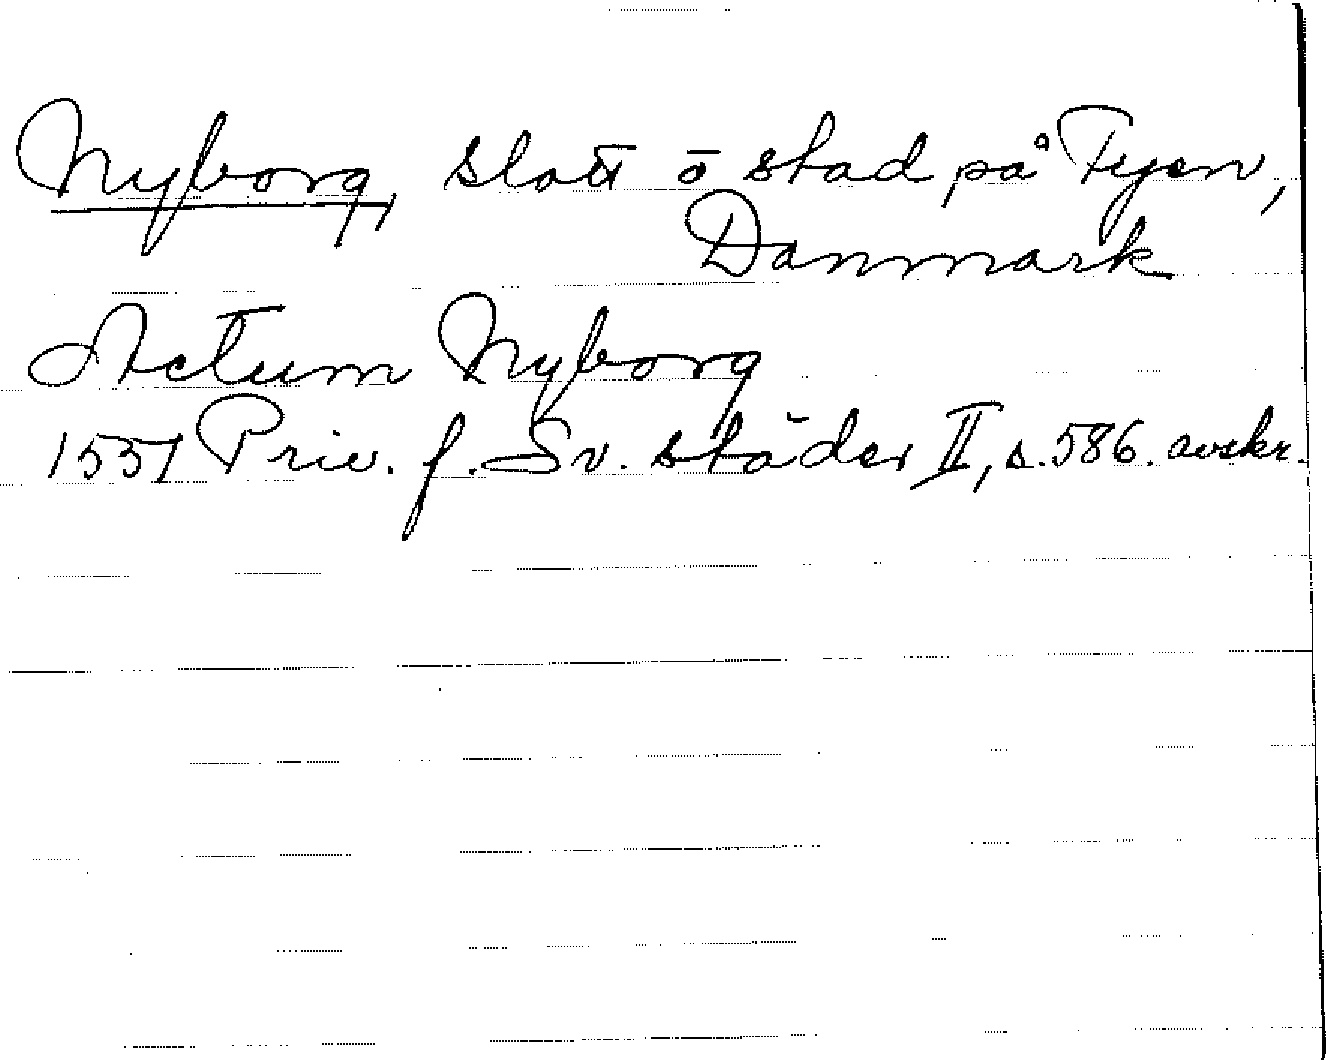 Nyborg, slott ō stad på Fyen,
Danmark
Actum Nyborg
1557 Priv. f. Sv. städer II, s. 586. avskr.